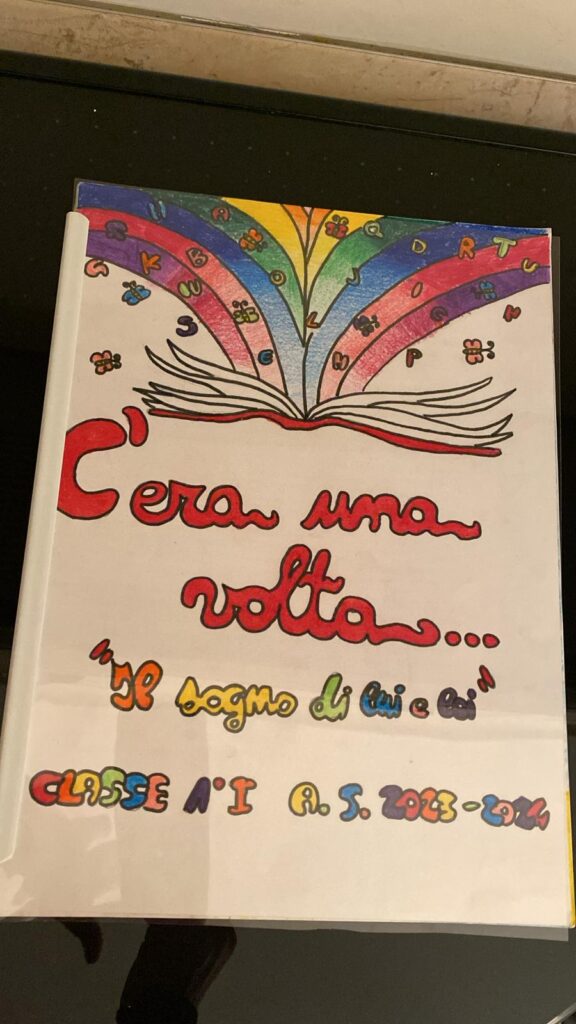 C'era una
volta...
"Il sogno di lui e lei"
CLASSE 1°I A. S. 2023-2024